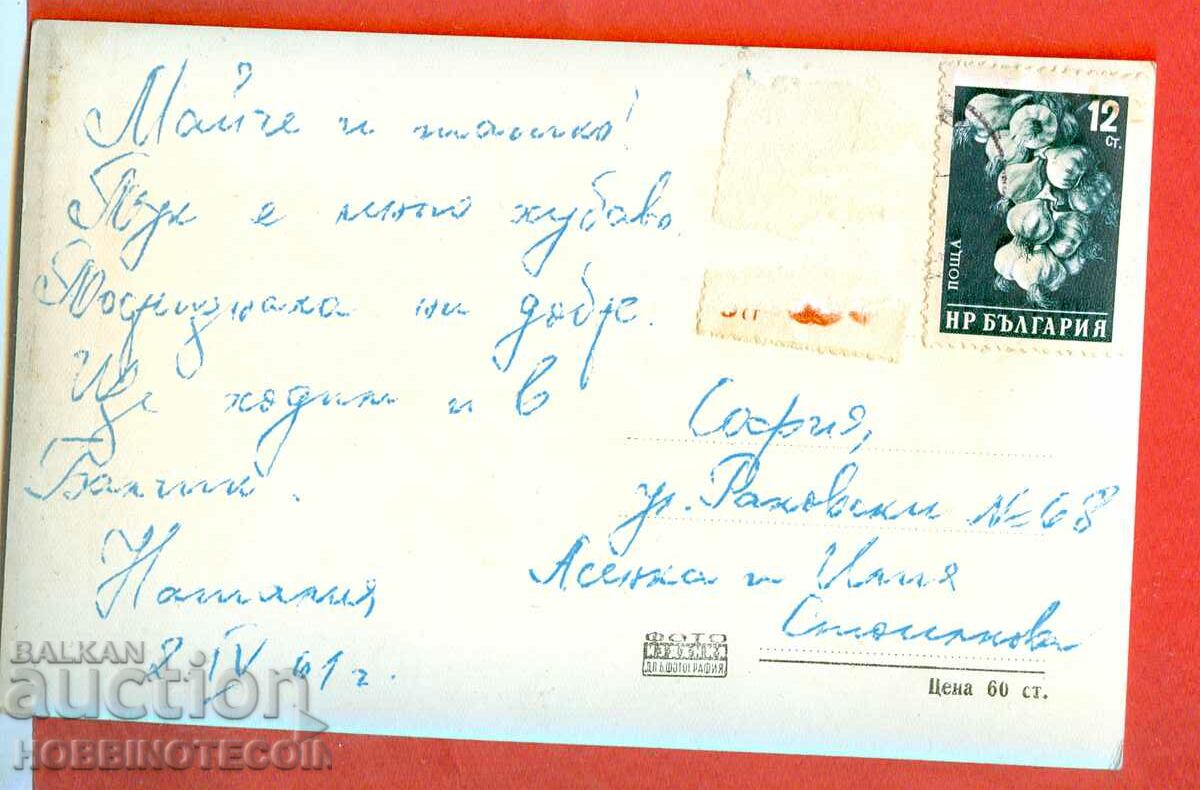 Майче и татко!
Тук е много хубаво.
Посрещнаха ни добре.
Ще ходим и в
Балчик.
Наталия
2. IV 61 г.
12
СТ.
ПОЩА
НР БЪЛГАРИЯ
София,
ул. Раковски № 68
Асенка и Илия
Стоянови
ФОТО
ДП БЪЛ.ФОТОГРАФИЯ
Цена 60 ст.
BALKAN
auction
HOBBINOTECOIN